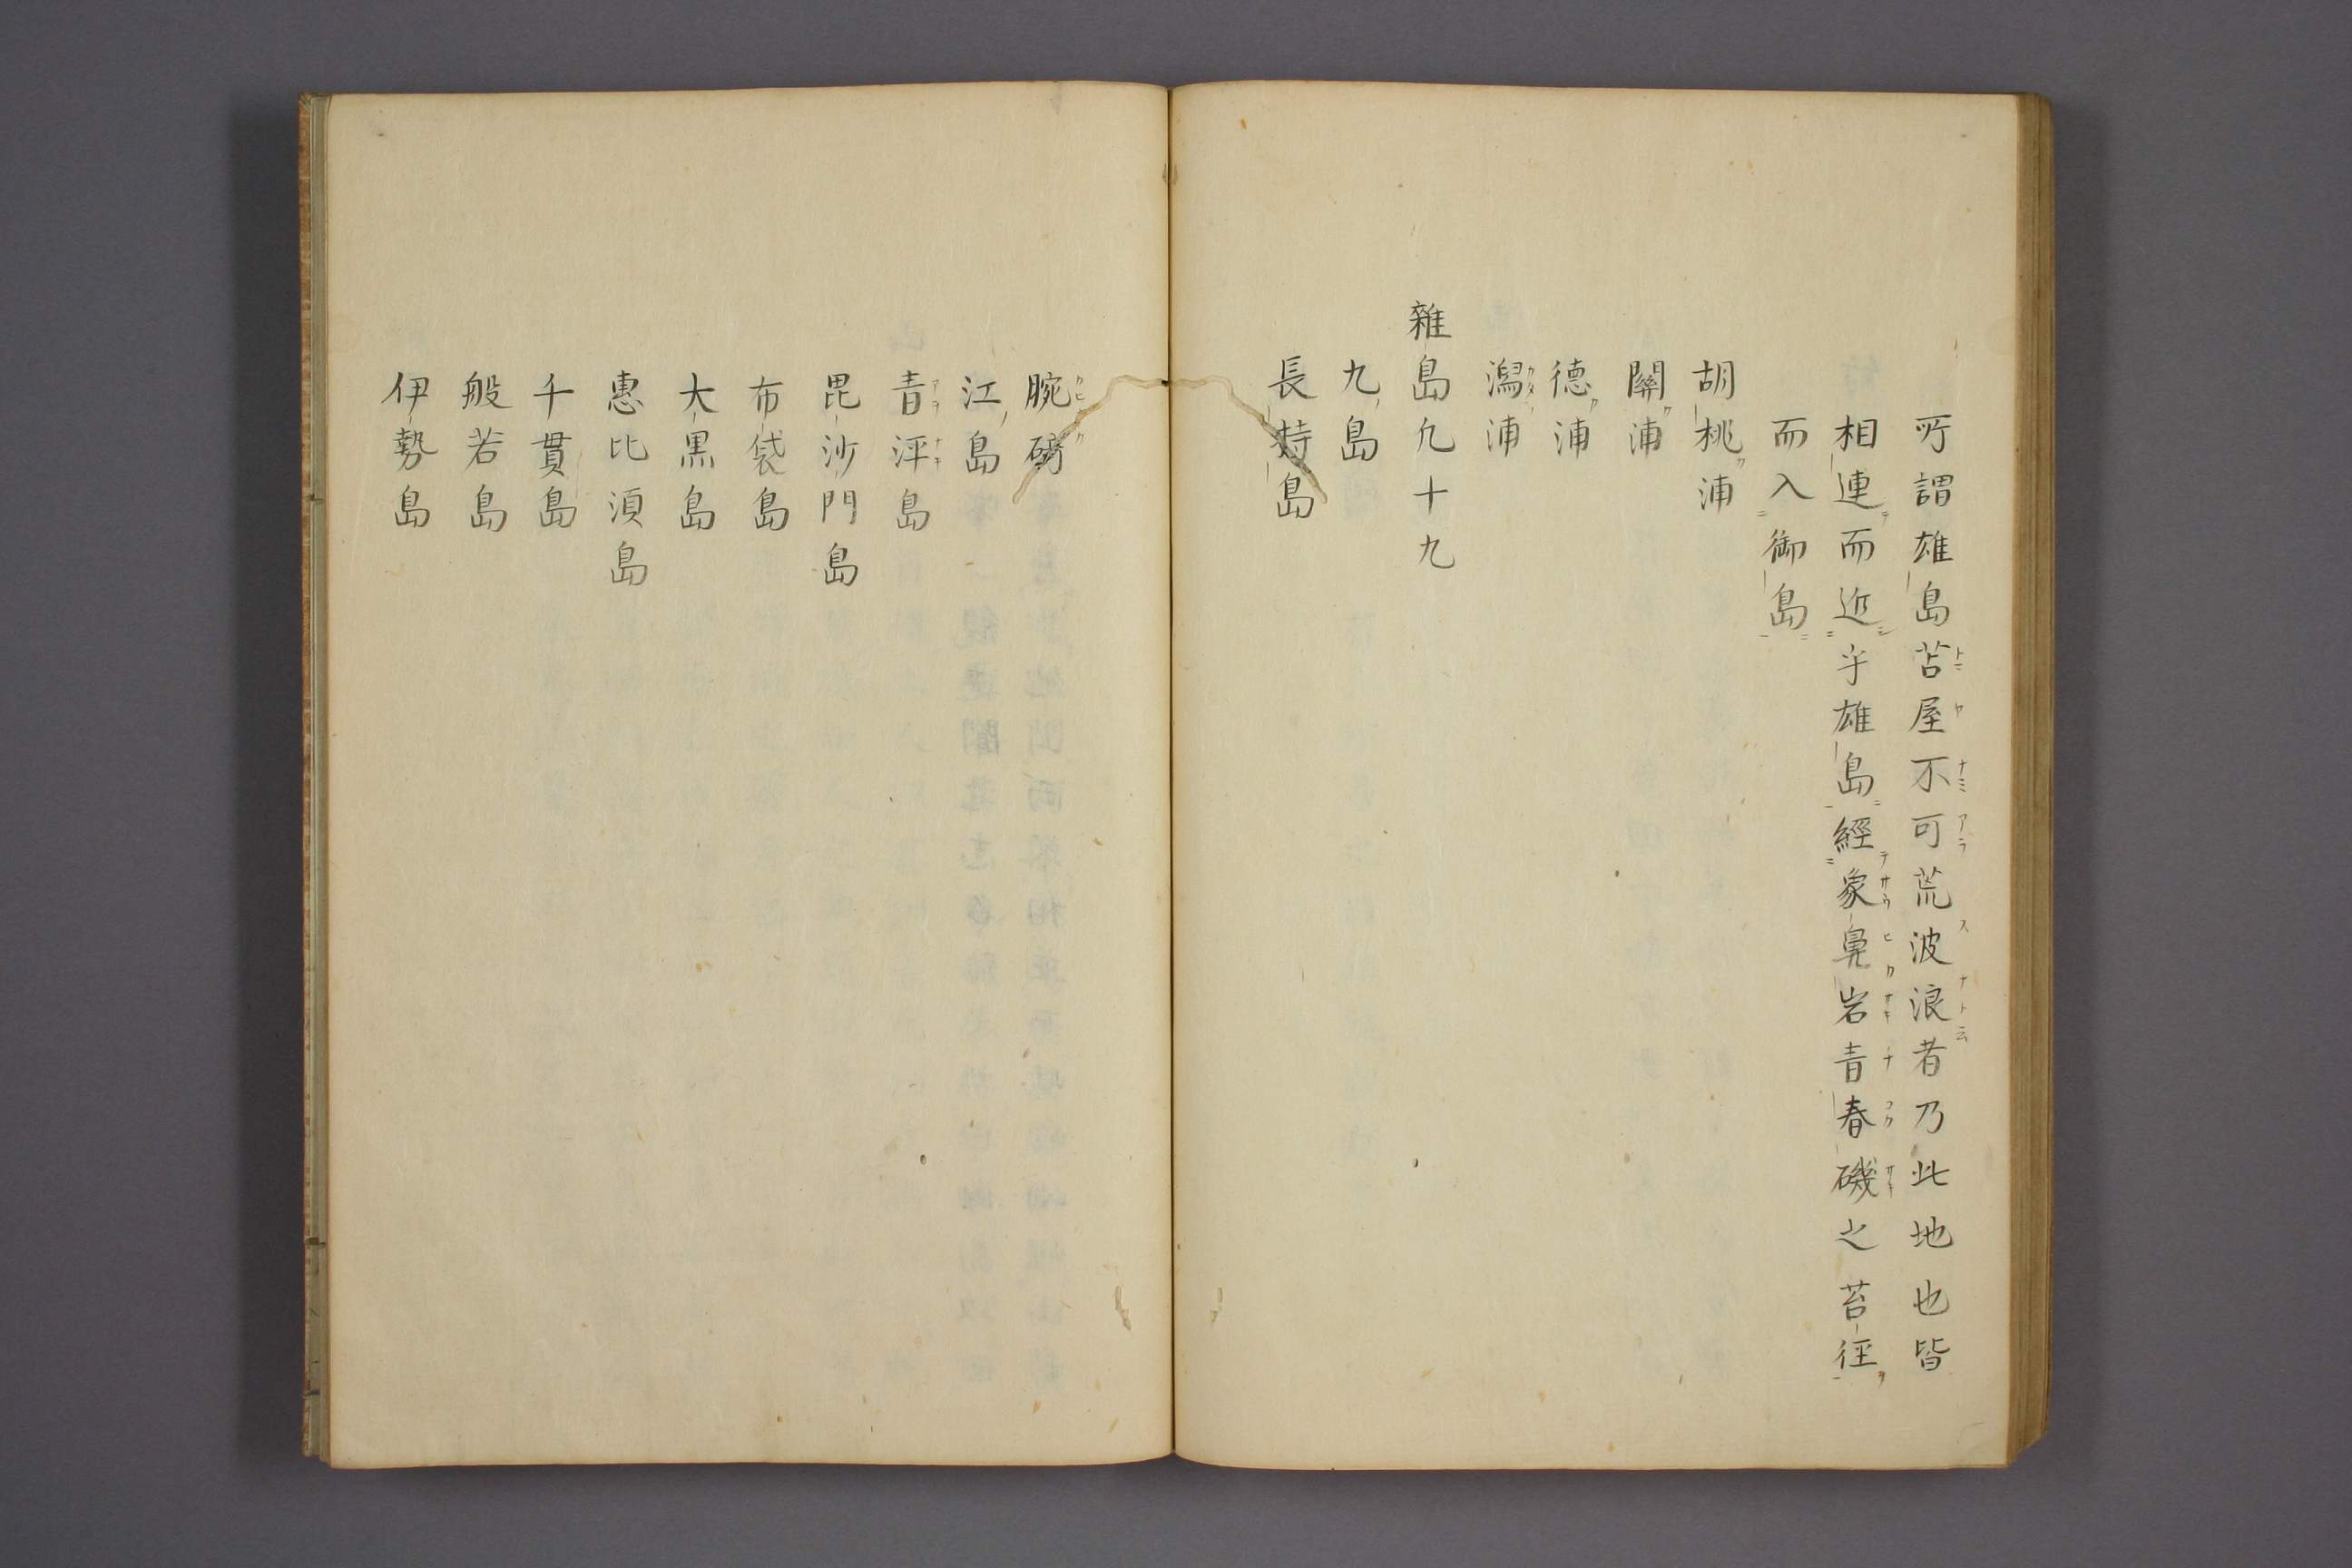 所謂雄島苫屋不可荒波浪者乃此地也皆
相連而近乎雄島經象鼻岩青春磯之苔徑
而入御島
胡桃浦
關浦
德浦
潟浦
雜島凢十九
九島
長持島
腕磅
江島
青泙島
毘沙門島
布袋島
大黒島
惠比須島
千貫島
般若島
伊勢島